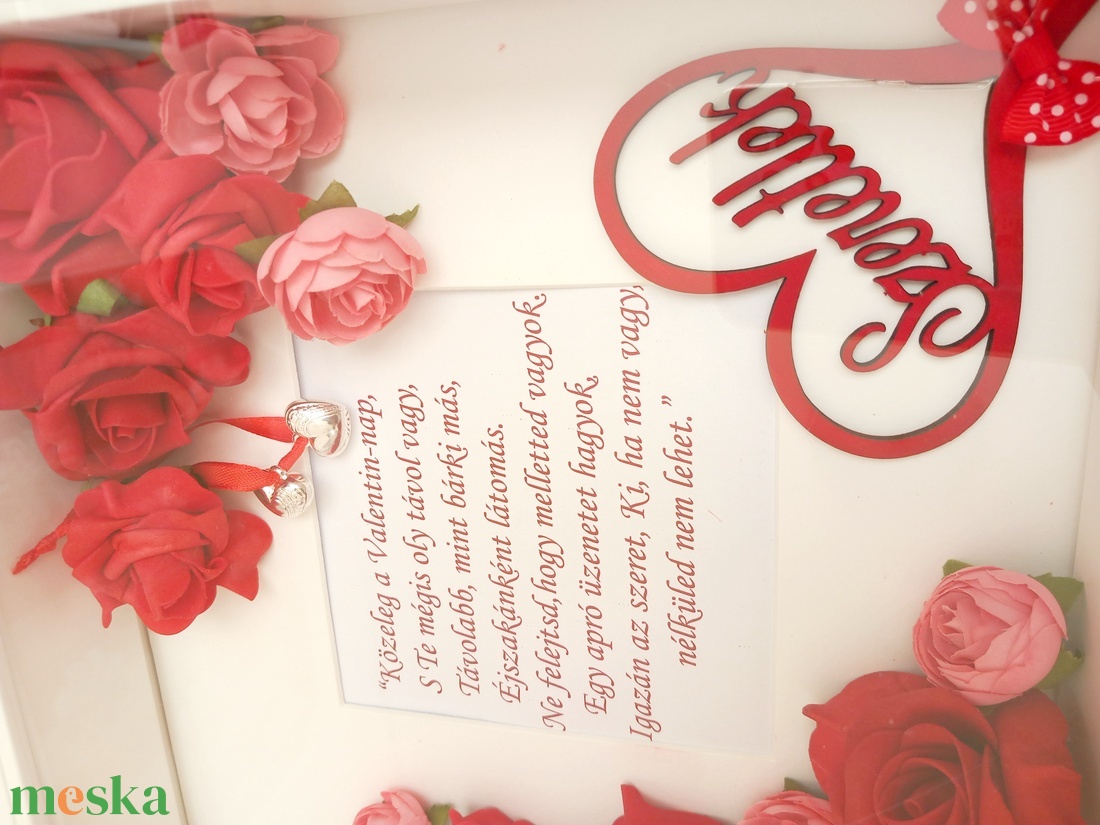 Szeretlek
“Közeleg a Valentin-nap,
S Te mégis oly távol vagy,
Távolabb, mint bárki más,
Éjszakánként látomás.
Ne felejtsd,hogy melletted vagyok.
Egy apró üzenetet hagyok,
Igazán az szeret, Ki, ha nem vagy,
nélküled nem lehet.”
meska